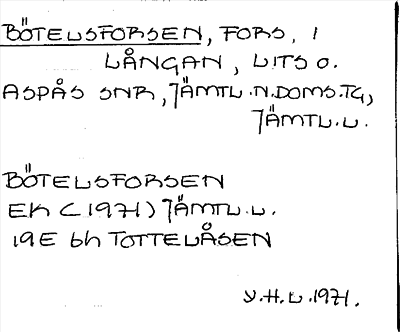 BÖTELSFORSEN, FORS, I
LÅNGAN, LITS O.
ASPÅS SNR, JÄMTL.N.DOMS.TG,
JÄMTL.L.
BÖTELSFORSEN
EK (1971) JÄMTL.L.
19E 6h TOTTELÅSEN
Y.H.L.1971.